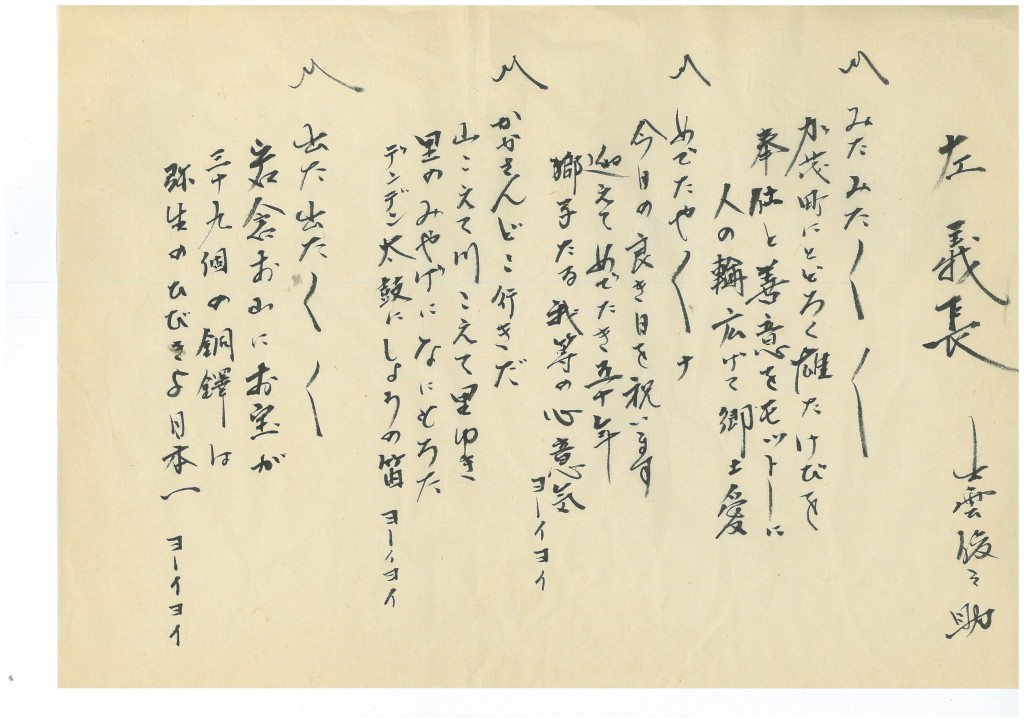 左義長
出雲俊之助
〽みたみた〱〱
加茂町にとどろく雄たけびを
奉仕と善意をモットーに
人の輪広げて郷土愛
〽めでたや〱ナ
今日の良き日を祝います
迎えてめでたき五十年
獅子たる我等の心意気
ヨーイヨイ
〽かかさんどこ行きだ
山こえて川こえて里ゆき
里のみやげになにもろた
デンデン太鼓にしょうの笛 ヨーイヨイ
〽出た出た〱〱
岩倉お山にお宝が
三十九個の銅鐸は
弥生のひびきよ日本一 ヨーイヨイ